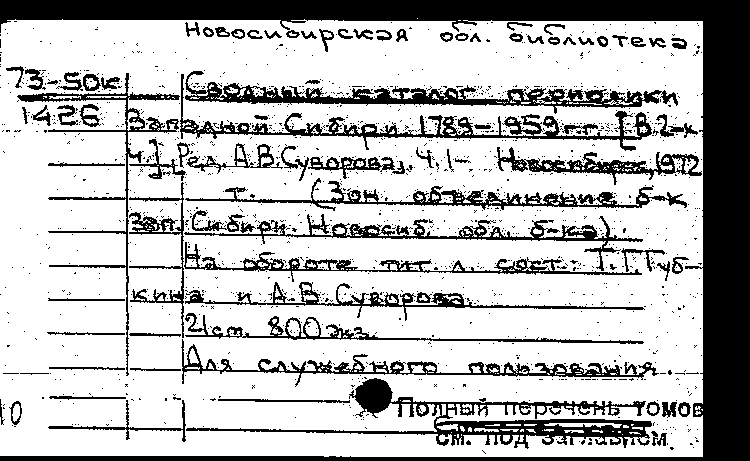 Новосибирская обл. библиотека.
73-50к Сводный каталог периодики
1426 Западной Сибири. 1789-1959 гг. [В 2-х
ч.]. [Ред. А.В.Суворова]. Ч.1- Новосибирск, 1972
т. (Зон. объединение б-к
Зап. Сибири. Новосиб. обл. б-ка).
На обороте тит. л. сост.: Т.Г.Губ-
кина и А.В.Суворова.
21см. 800 экз.
Для служебного пользования.
Полный перечень томов
см. под заглавием.